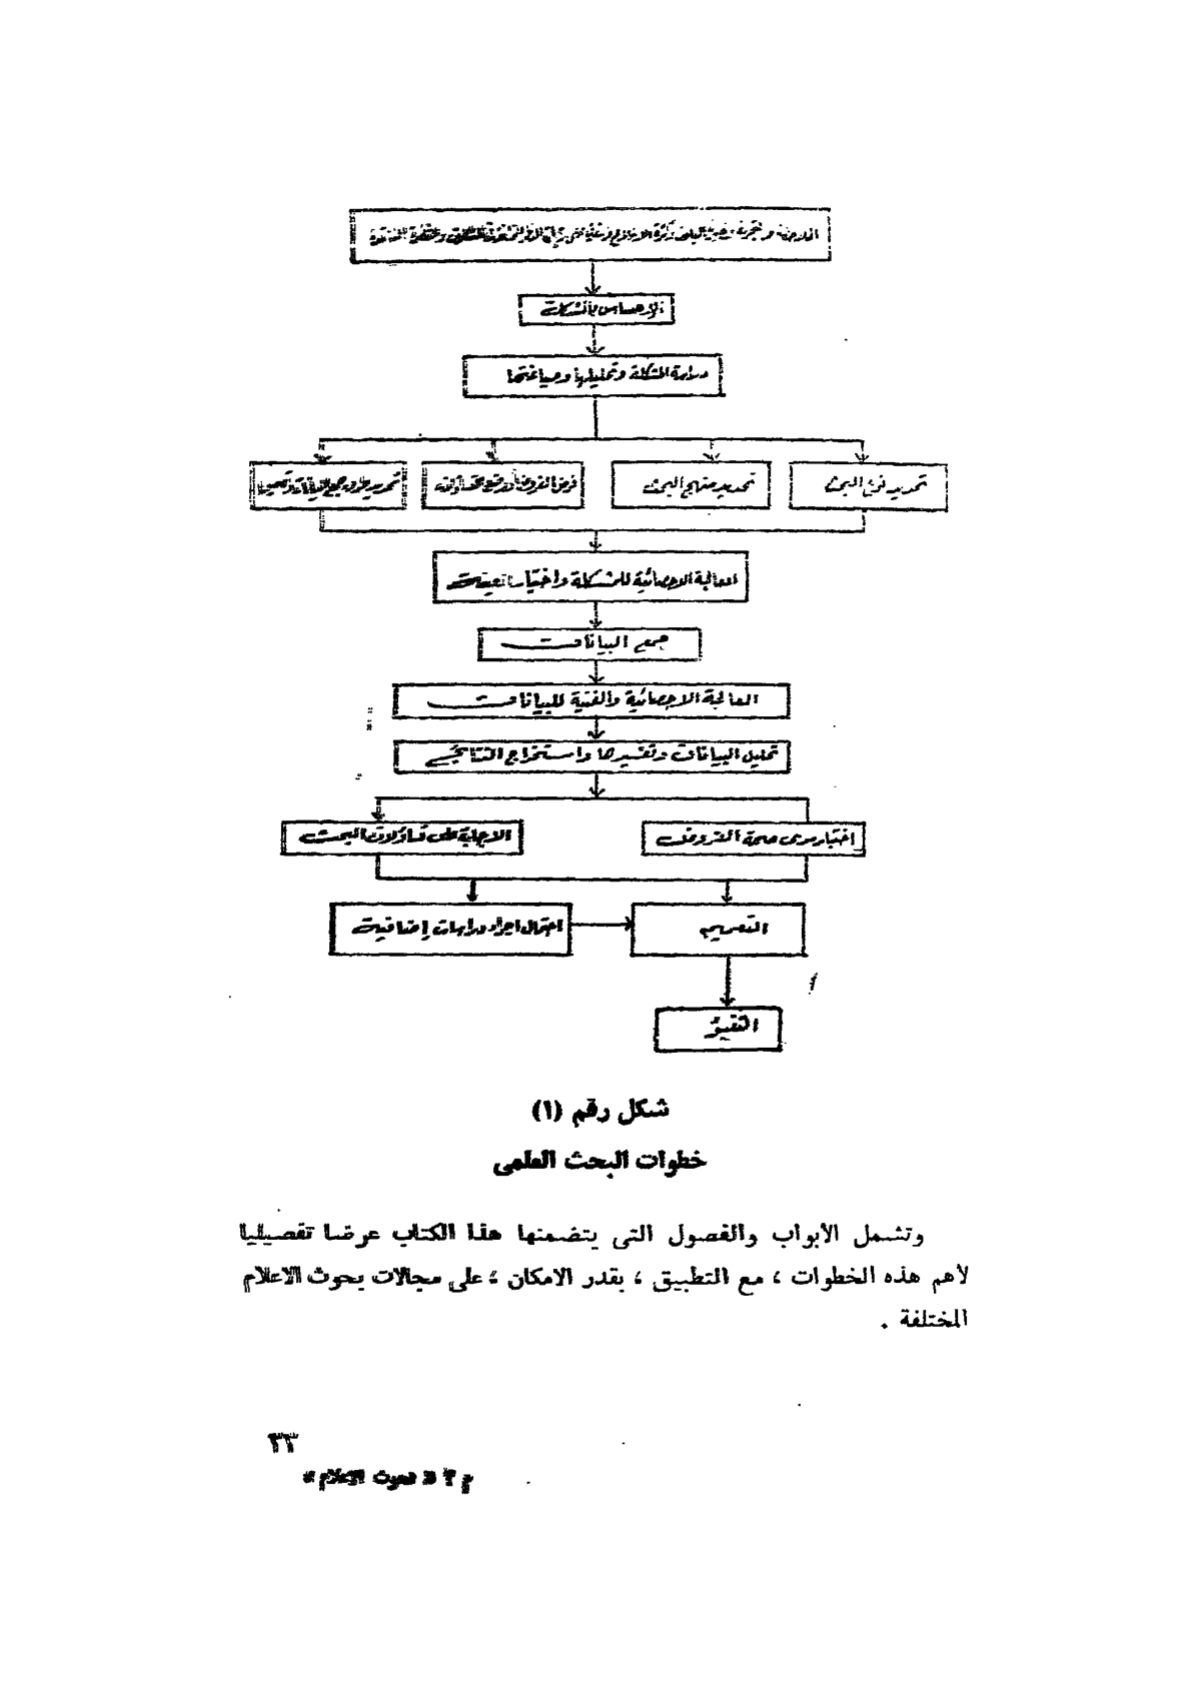 الإحساس بالمشكلة
دراسة المشكلة وتحليلها وصياغتها
تحديد نوع البحث
تحديد منهج البحث
فرض الفروض أو وضع
تحديد طرق جمع البيانات
المعالجة الاحصائية للمشكلة واختيار العينة
جمع البيانات
المعالجة الاحصائية والفنية للبيانات
تحليل البيانات وتفسيرها واستخراج النتائج
اختبار مدى صحة الفروض
الاجابة على تساؤلات البحث
التعميم
احتمال اجراء دراسات إضافية
التنبؤ
شكل رقم (١)
خطوات البحث العلمى
وتشمل الأبواب والفصول التى يتضمنها هذا الكتاب عرضا تفصيليا
لأهم هذه الخطوات ، مع التطبيق ، بقدر الامكان ، على مجالات بحوث الاعلام
المختلفة .
٣٣
م ٣ « بحوث الاعلام »